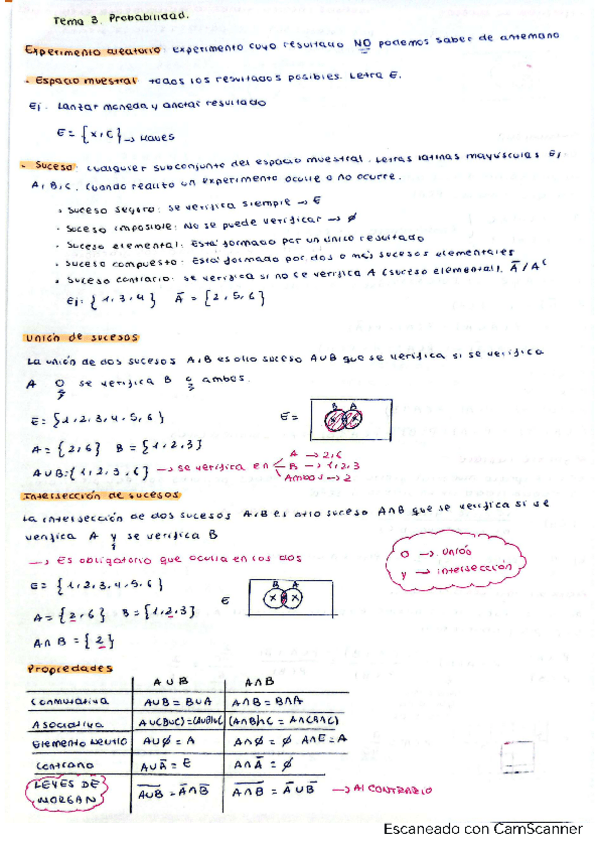 Tema 3. Probabilidad.
Experimento aleatorio: experimento cuyo resultado NO podemos saber de antemano
- Espacio muestral: todos los resultados posibles. Letra E.
Ej. Lanzar moneda y anotar resultado
E = {x, c} → llaves
- Suceso: cualquier subconjunto del espacio muestral. Letras latinas mayúsculas Ej.
A, B, C. Cuando realizo un experimento ocurre o no ocurre.
• Suceso seguro: se verifica siempre → E
• Suceso imposible: No se puede verificar → ∅
• Suceso elemental: Está formado por un único resultado
• Suceso compuesto: Está formado por dos o más sucesos elementales
• Suceso contrario: se verifica si no se verifica A (suceso elemental). Ā / Aᶜ
Ej: {1, 3, 4} Ā = {2, 5, 6}
Unión de sucesos
La unión de dos sucesos A, B es otro suceso A∪B que se verifica si se verifica
A o se verifica B o ambos.
E = {1, 2, 3, 4, 5, 6} E =
B A
A = {2, 6} B = {1, 2, 3}
A∪B: {1, 2, 3, 6} → se verifica en
A → 2, 6
B → 1, 2, 3
Ambos → 2
Intersección de sucesos
La intersección de dos sucesos A, B es otro suceso A∩B que se verifica si se
verifica A y se verifica B
→ Es obligatorio que ocurra en los dos
o → unión
y → intersección
E = {1, 2, 3, 4, 5, 6}
B A
E
A = {2, 6} B = {1, 2, 3}
A∩B = {2}
Propiedades
A∪B A∩B
Conmutativa A∪B = B∪A A∩B = B∩A
Asociativa A∪(B∪C) = (A∪B)∪C (A∩B)∩C = A∩(B∩C)
Elemento neutro A∪∅ = A A∩∅ = ∅ A∩E = A
Contrario A∪Ā = E A∩Ā = ∅
LEYES DE MORGAN A̅∪̅B̅ = Ā∩B̄ A̅∩̅B̅ = Ā∪B̄ → Al CONTRARIO
Escaneado con CamScanner